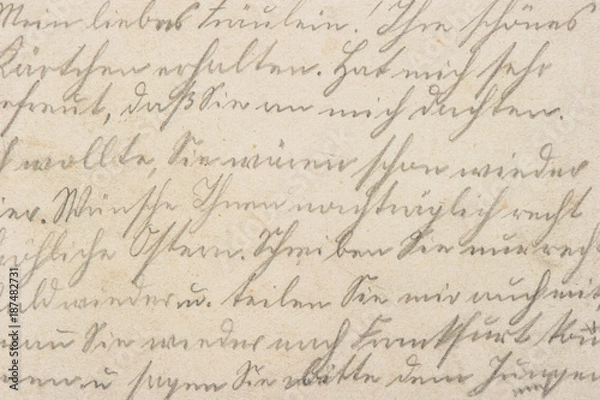 Mein liebes Fräulein! Ihre schönes
Kärtchen erhalten. Hat mich sehr
efreut, daß Sie an mich dachten.
h wollte, Sie wären schon wieder
ier. Wünsche Ihnen nachträglich recht
röhliche Ostern. Schreiben Sie nur rech
ld wieder u. teilen Sie mir auch mit,
ann Sie wieder nach Frankfurt
en u sagen Sie bitte dem Jungen
Adobe Stock | #187482731